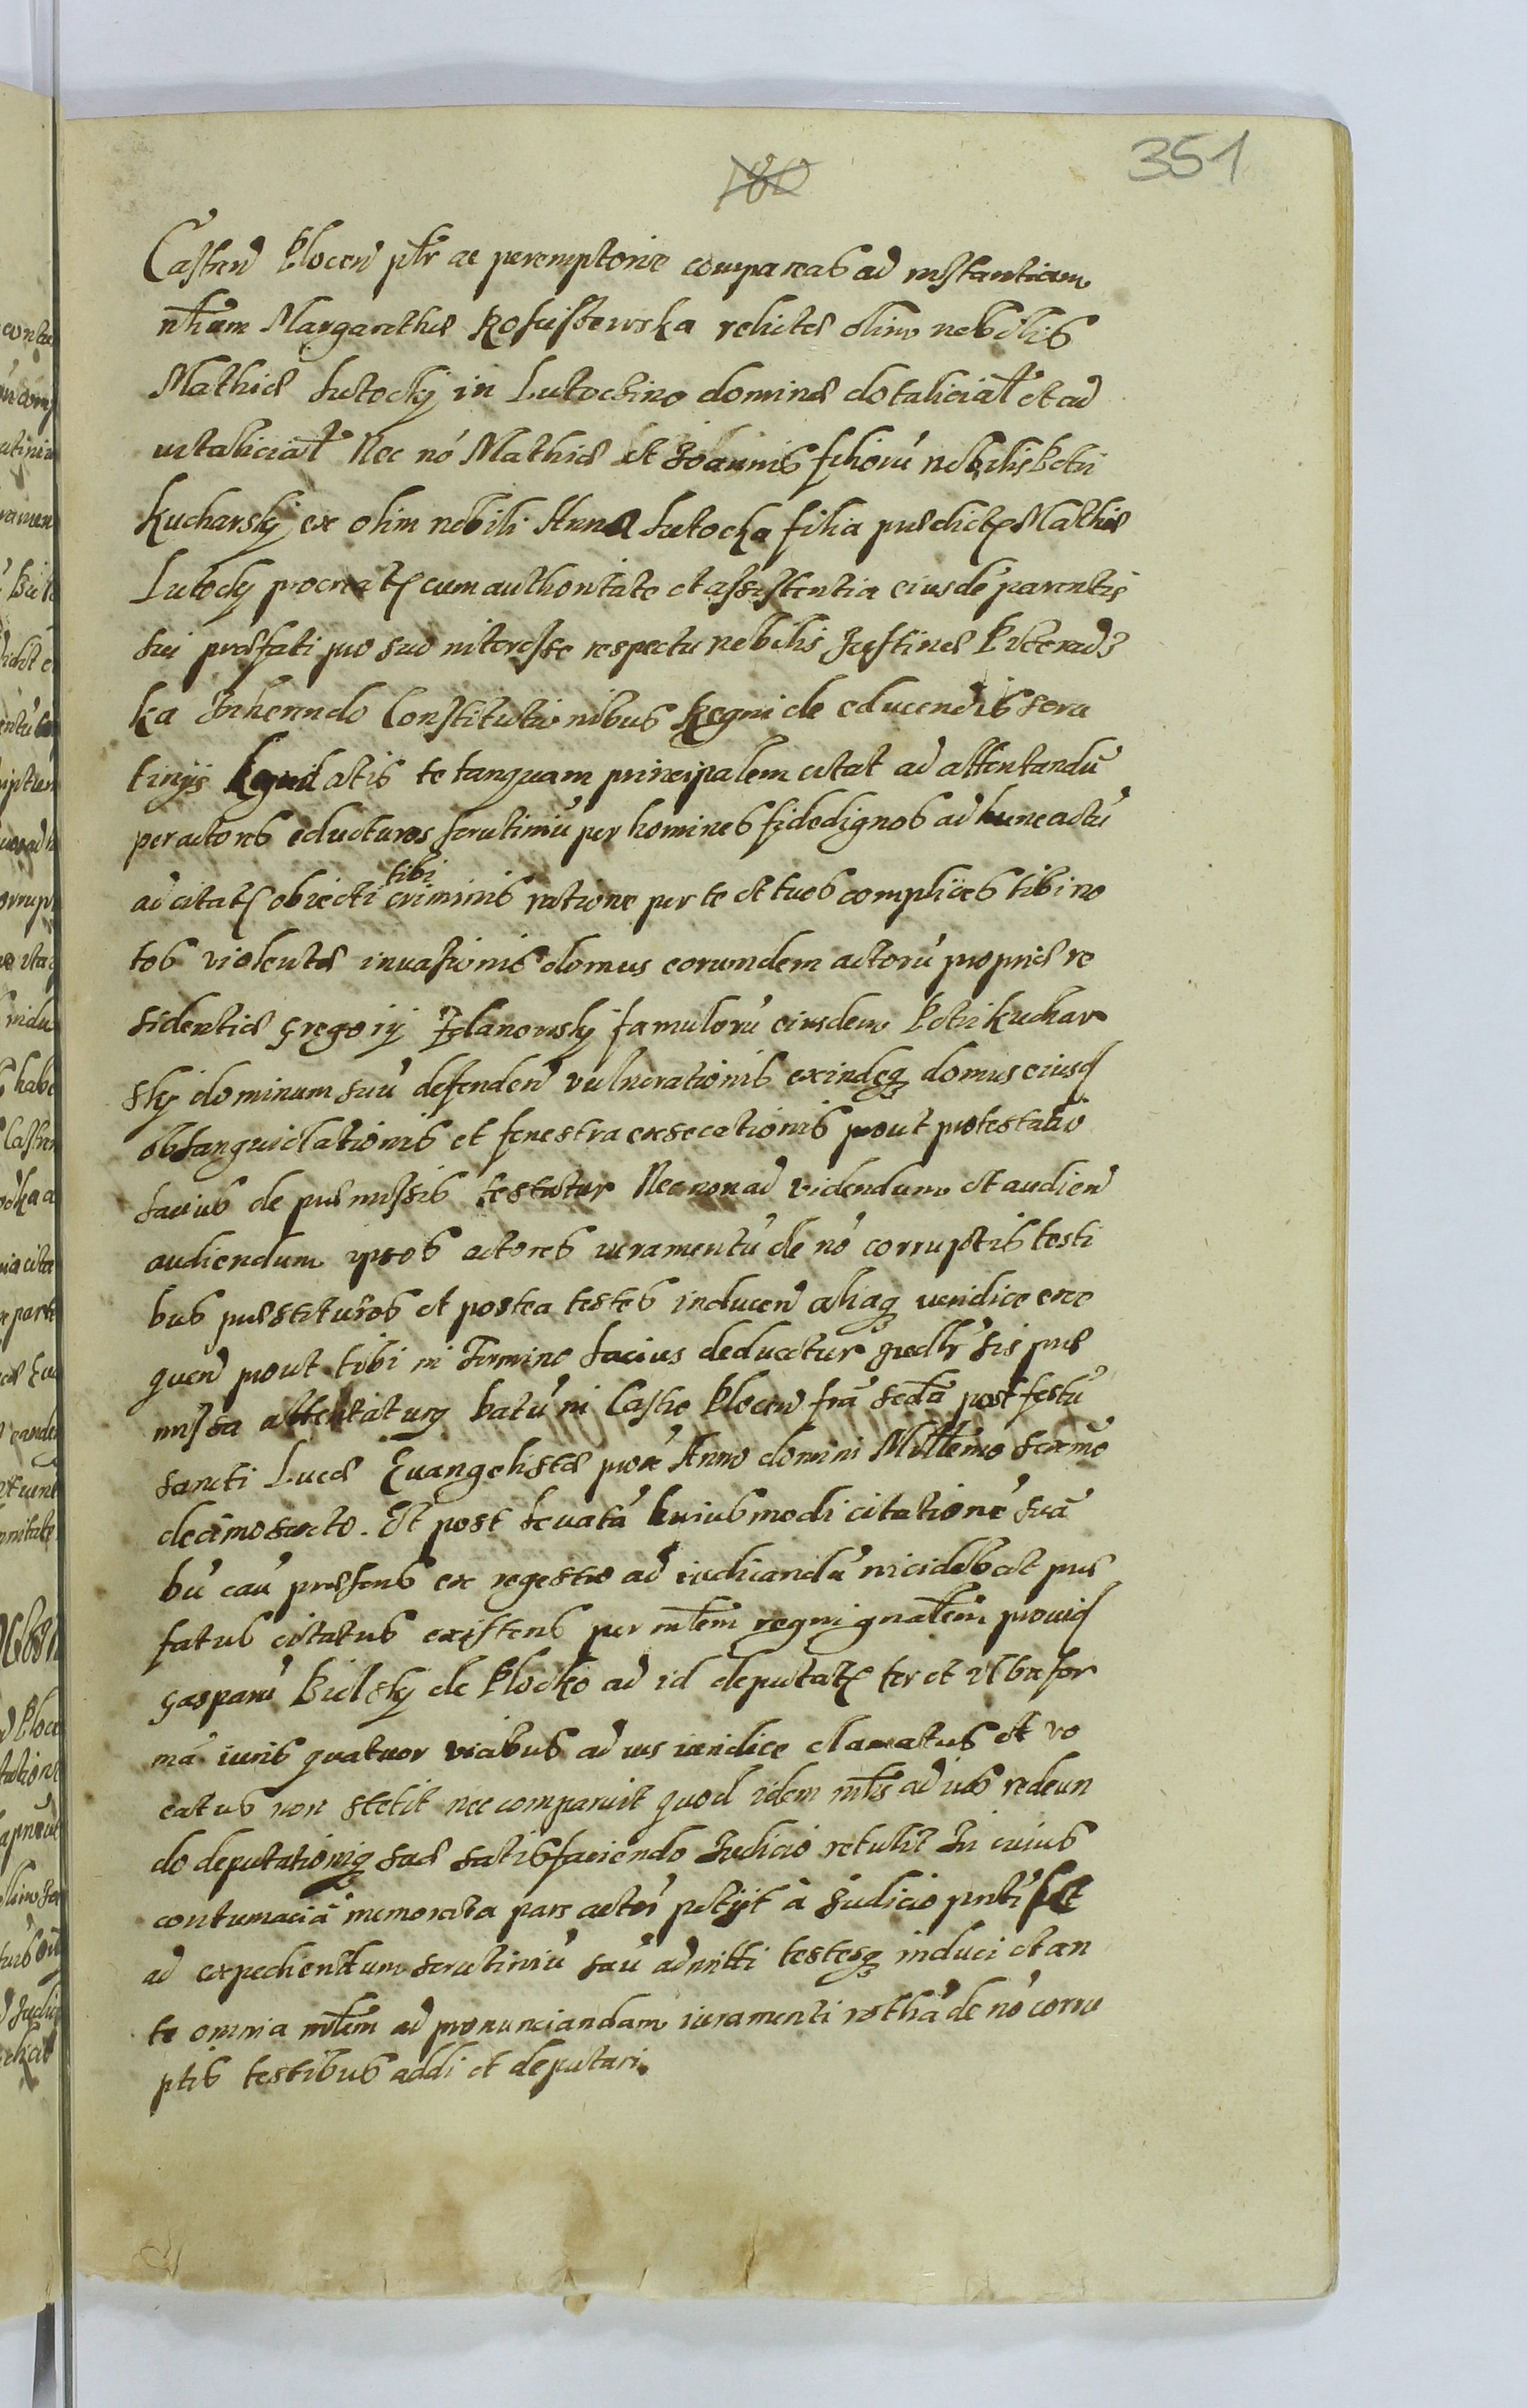 351
180
Castren̄ Plocen̄ pltr ac peremptorie compareas ad instantiam
nlium Margarethæ Kosciszewska relictæ olim nobilis
Mathiæ Lutocky in Lutocino dominæ dotalicial et ad
uitalicial Nec nō Mathiæ et Joannis filiorū nobilis Petri
Kucharsky ex olim nobili Anna Lutocka filia prædict Mathiæ
Lutocky procreat cum authoritate et assistentia eiusdē parentis
sui præfati pro suo interesse respectu nobilis Justinæ
ka Inherendo Constitutionibus Regni de educendis scru
tinijs te tanquam principalem citat ad attentandū
per actores educturos scrutiniū per homines fidedignos ad hunc actū
ad citat obiecti tibi criminis ratione per te et tuos complices tibi no
tos violentæ inuasionis domus eorumdem actorū propriæ re
sidentiæ Gregorij Zdanowsky famulorū eiusdem Petri Kuchar
sky dominum suū defenden̄ vulnerationis exindeq domus eiusd
obsanguidationis et fenestra exsecationis prout protestatio
lacius de præmissis testatur Nec non ad videndum et audien̄
audiendum ipsos actores iuramentū de nō corruptis testi
bus præstituros et postea testes inducen̄ aliaq iuridice exe
quen̄ prout tibi in Termino lacius deducetur gredlr sis præ
missa attentaturg batū in Castro Plocen̄ frā secdā post festū
sancti Lucæ Euangelistæ prox Anno domini Millemo sexmo
decimosexto. Et post leuatā huiusmodi citationē suā
bū cau præsens ex regestro ad iudicandū incidebat præ
fatus citatus existens per mlem regni gnalem prouid
Gasparū Bielsky de Plocko ad id deputat ter et vltra for
mā iuris quatuor vicibus ad ius iuridice clamatus et vo
catus non stetit nec comparuit quod idem mlis ad ius redeun
do deputationiq suæ satisfaciendo Judicio retulit In cuius
contumaciā memorata pars actor petijt à Judicio pnti
ad expediendum scrutiniū suū admitti testesq induci et an
te omnia mlem ad pronunciandam iuramenti rothā de nō corru
ptis testibus addi et deputari.